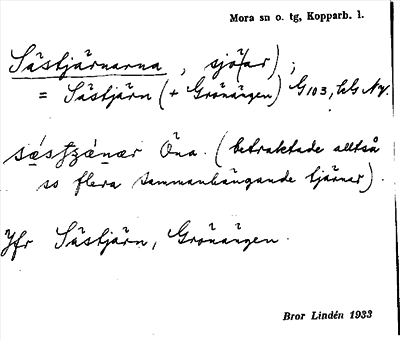 Mora sn o. tg, Kopparb. l.
Sästjärnarna, sjö(ar);
= Sästjärn (+ Grönängen) G103, EG Ny.
Öna. (betraktade alltså
ss flera sammanhängande tjärner).
Jfr Sästjärn, Grönängen.
Bror Lindén 1933